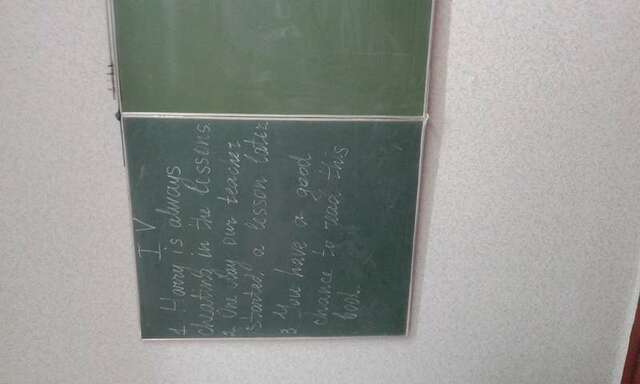 IV
1 Harry is always
cheating in the lessons.
2 One day our teacher
started a lesson later
3 You have a good
chance to read this
book.